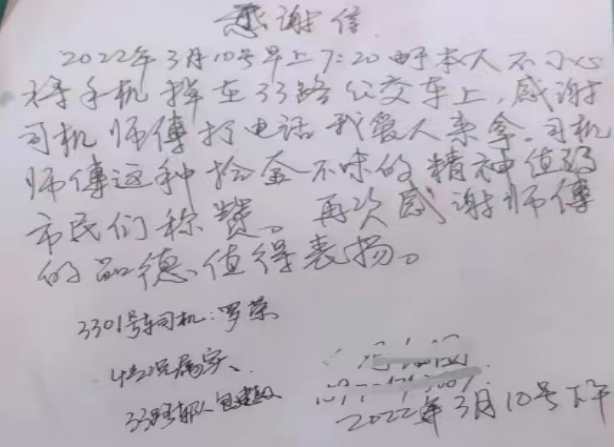 感谢信
2022年3月10号早上7:20由于本人不小心
将手机掉在33路公交车上,感谢
司机师傅打电话我爱人来拿。司机
师傅这种拾金不味的精神值得
市民们称赞。再次感谢师傅
的品德,值得表扬。
3301号车司机:罗荣
情况属实、
33路
2022年3月10号下午